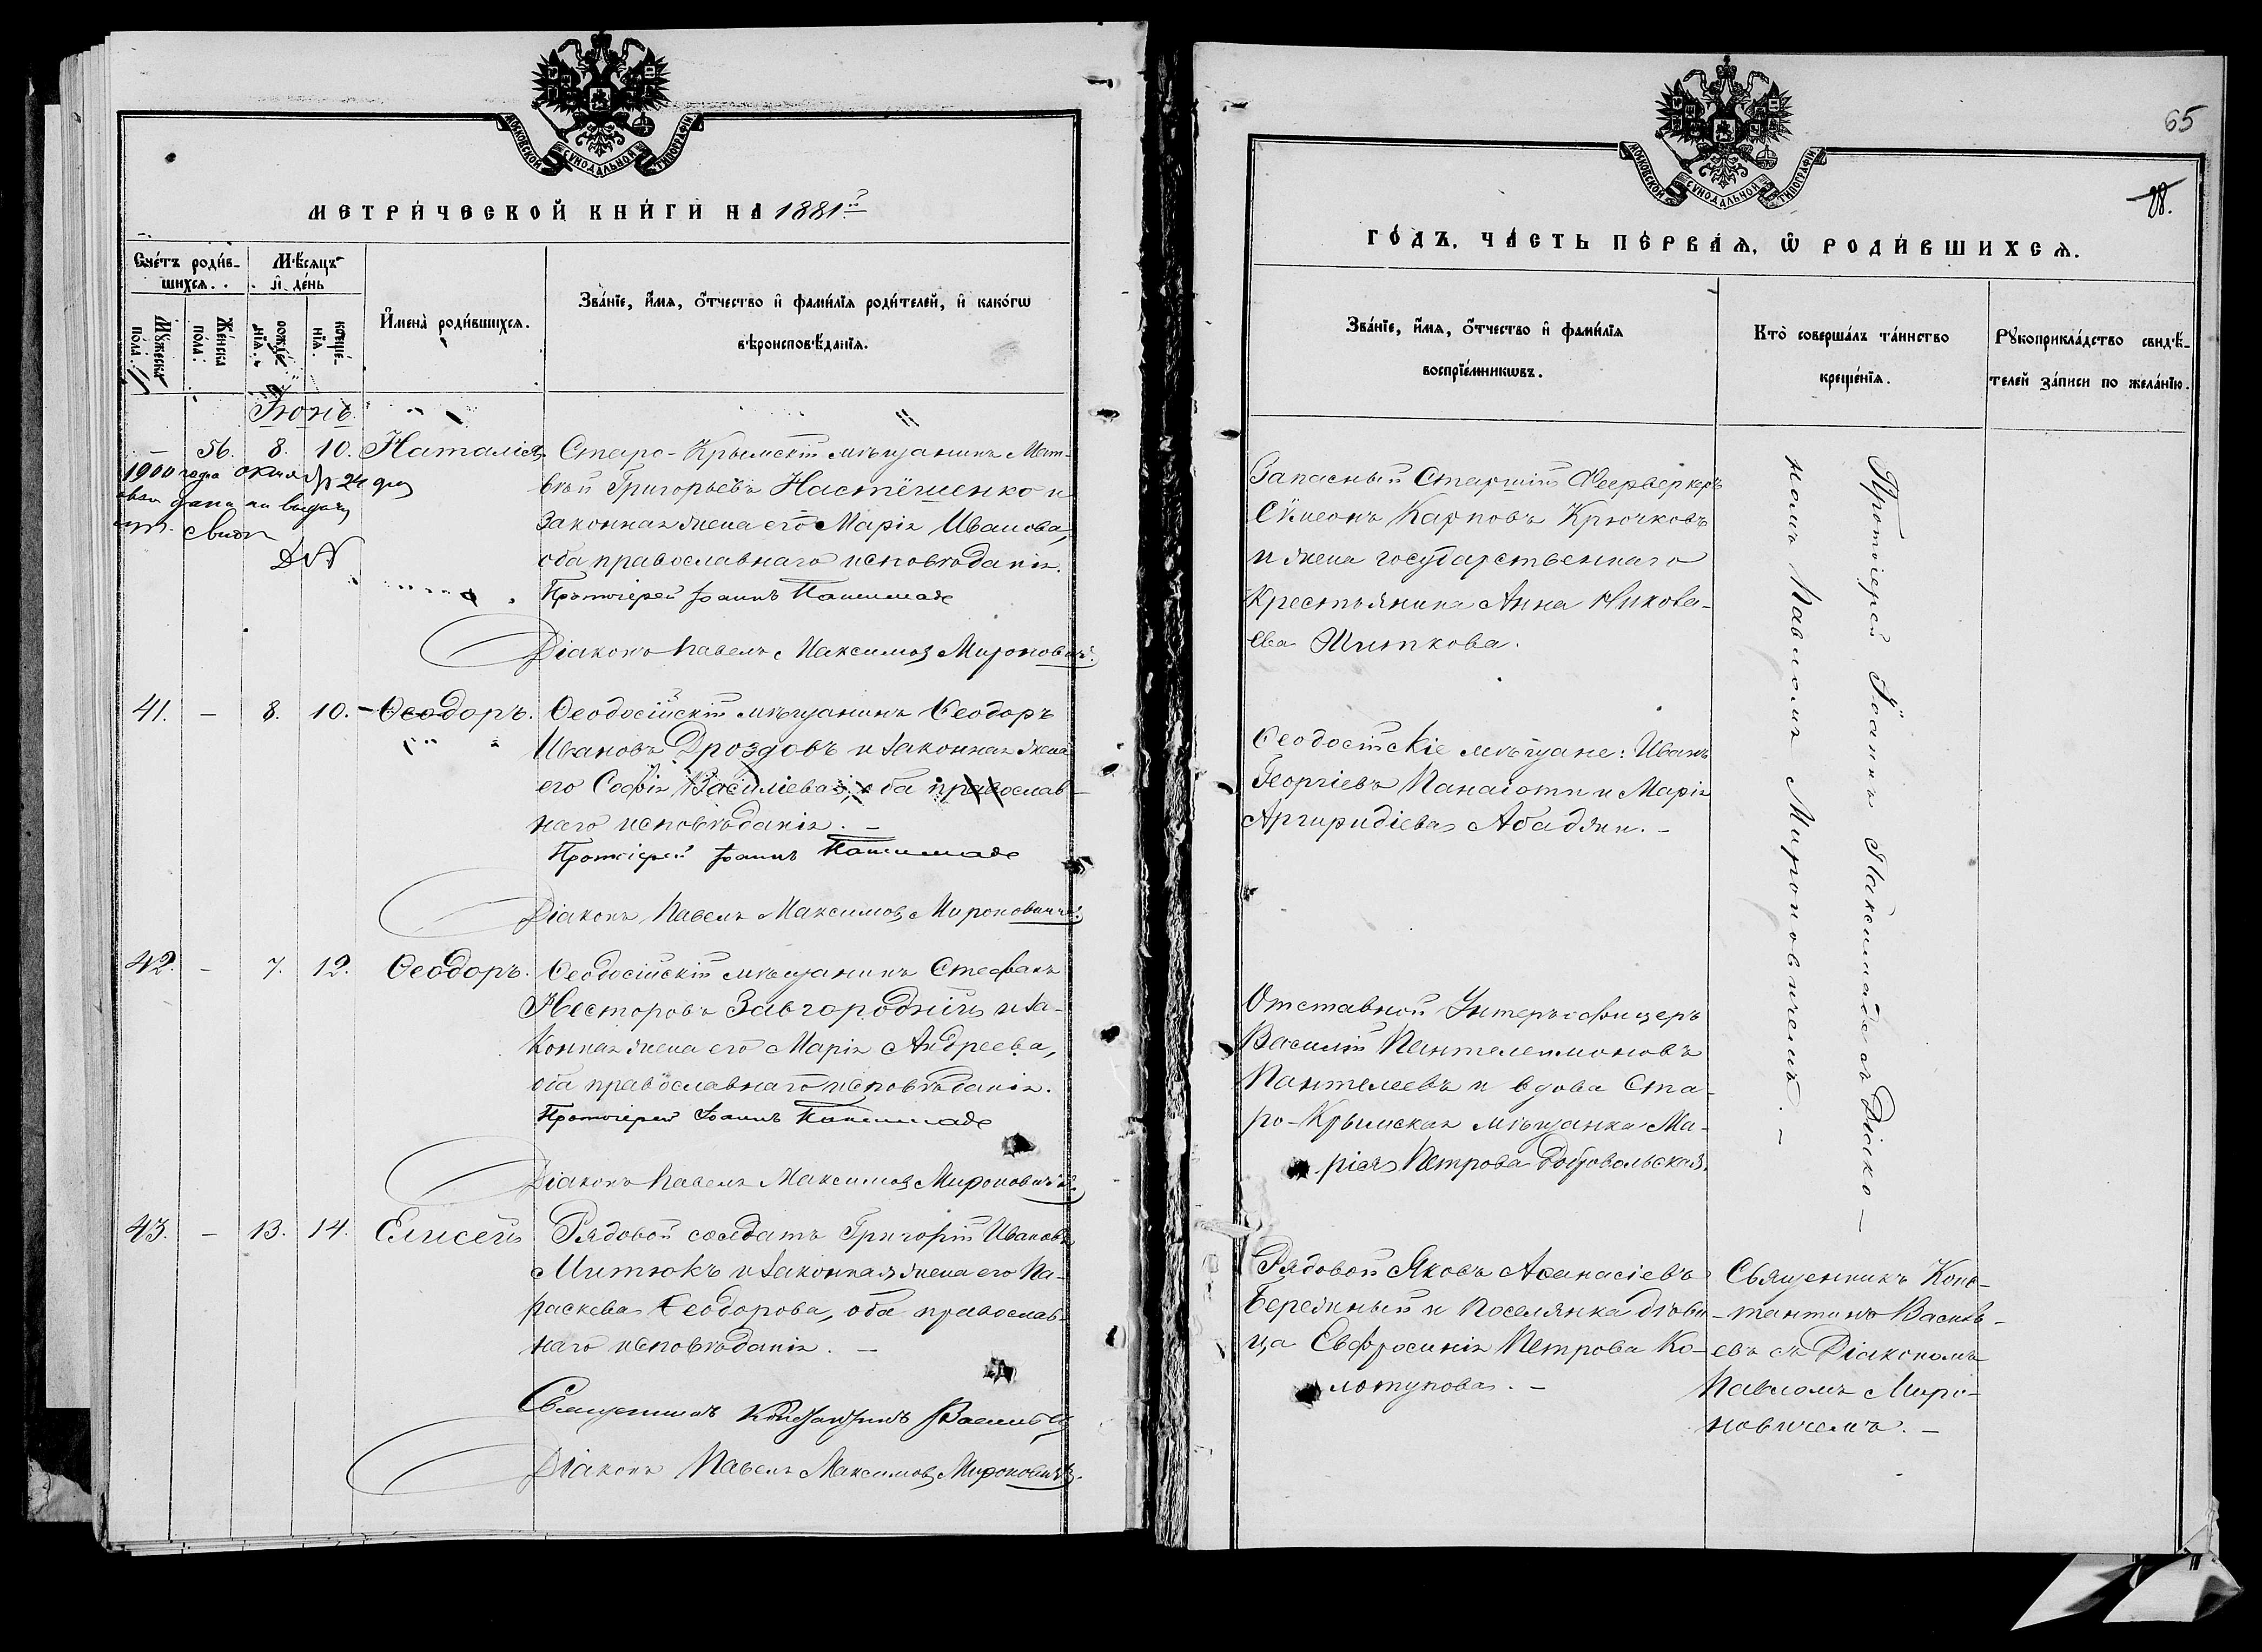 МОСКОВСКОЙ СѴНОДАЛЬНОЙ ТИПОГРАФІИ
МЕТРИЧЕСКОЙ КНИГИ НА 1881й
Счетъ родив-
шихся.
Мѣсяцъ
и день
Мужеска
пола.
Женска
пола.
рожде-
нія.
креще-
нія.
Имена родившихся.
Званіе, имя, отчество и фамилія родителей, и какогѡ
вѣроисповѣданія.
Іюнь
— 56. 8. 10. Наталія Старо-Крымскій мѣщанинъ Мат-
вѣй Григорьевъ Настёшенко и
законная жена его Марія Иванова,
оба православнаго исповѣданія.
1900 года октября 24 дня
дана на выдачу
свид
Протоіерей Іоаннъ Пакшимаде
Діаконъ Павелъ Максимов Мироновичъ.
41. — 8. 10. Ѳеодоръ. Ѳеодосійскій мѣщанинъ Ѳеодоръ
Ивановъ Дроздовъ и законная жена
его Софія Василіева, оба православ-
наго исповѣданія. —
Протоіерей Іоаннъ Пакшимаде
Діаконъ Павелъ Максимов Мироновичъ.
42. — 7. 12. Ѳеодоръ. Ѳеодосійскій мѣщанинъ Стефанъ
Несторовъ Завгородній и за-
конная жена его Марія Андреева,
оба православнаго исповѣданія.
Протоіерей Іоаннъ Пакшимаде
Діаконъ Павелъ Максимов Мироновичъ.
43. — 13. 14. Елисей Рядовой солдатъ Григорій Ивановъ
Митюкъ и законная жена его Па-
раскева Ѳеодорова, оба православ-
наго исповѣданія. —
Священникъ Константинъ Васильевъ
Діаконъ Павелъ Максимов Мироновичъ.
65
МОСКОВСКОЙ СѴНОДАЛЬНОЙ ТИПОГРАФІИ
ГОДЪ, ЧАСТЬ ПЕРВАЯ, Ѡ РОДИВШИХСЯ.
Званіе, имя, отчество и фамилія
воспріемникѡвъ.
Кто совершалъ таинство
крещенія.
Рукоприкладство свидѣ-
телей записи по желанію.
Запасный Старшій Феерверкеръ
Сѵмеонъ Карповъ Крючковъ
и жена государственнаго
крестьянина Анна Никола-
ева Житкова.
Ѳеодосійскіе мѣщане: Иванъ
Георгіевъ Панаіоти и Марія
Аргиридіева Абаджи. —
Отставной Унтеръ-офицеръ
Василій Пантелеимоновъ
Пантелеевъ и вдова Ста-
ро-Крымская мѣщанка Ма-
рія Петрова Добровольская.
Протоіерей Іоаннъ Пакшимаде съ Діако-
номъ Павломъ Мироновичемъ. —
Рядовой Яковъ Аѳанасіевъ
Бережный и поселянка дѣви-
ца Евфросинія Петрова Ко-
лотупова. —
Священникъ Конс-
тантинъ Василь-
евъ съ Діакономъ
Павломъ Миро-
новичемъ. —